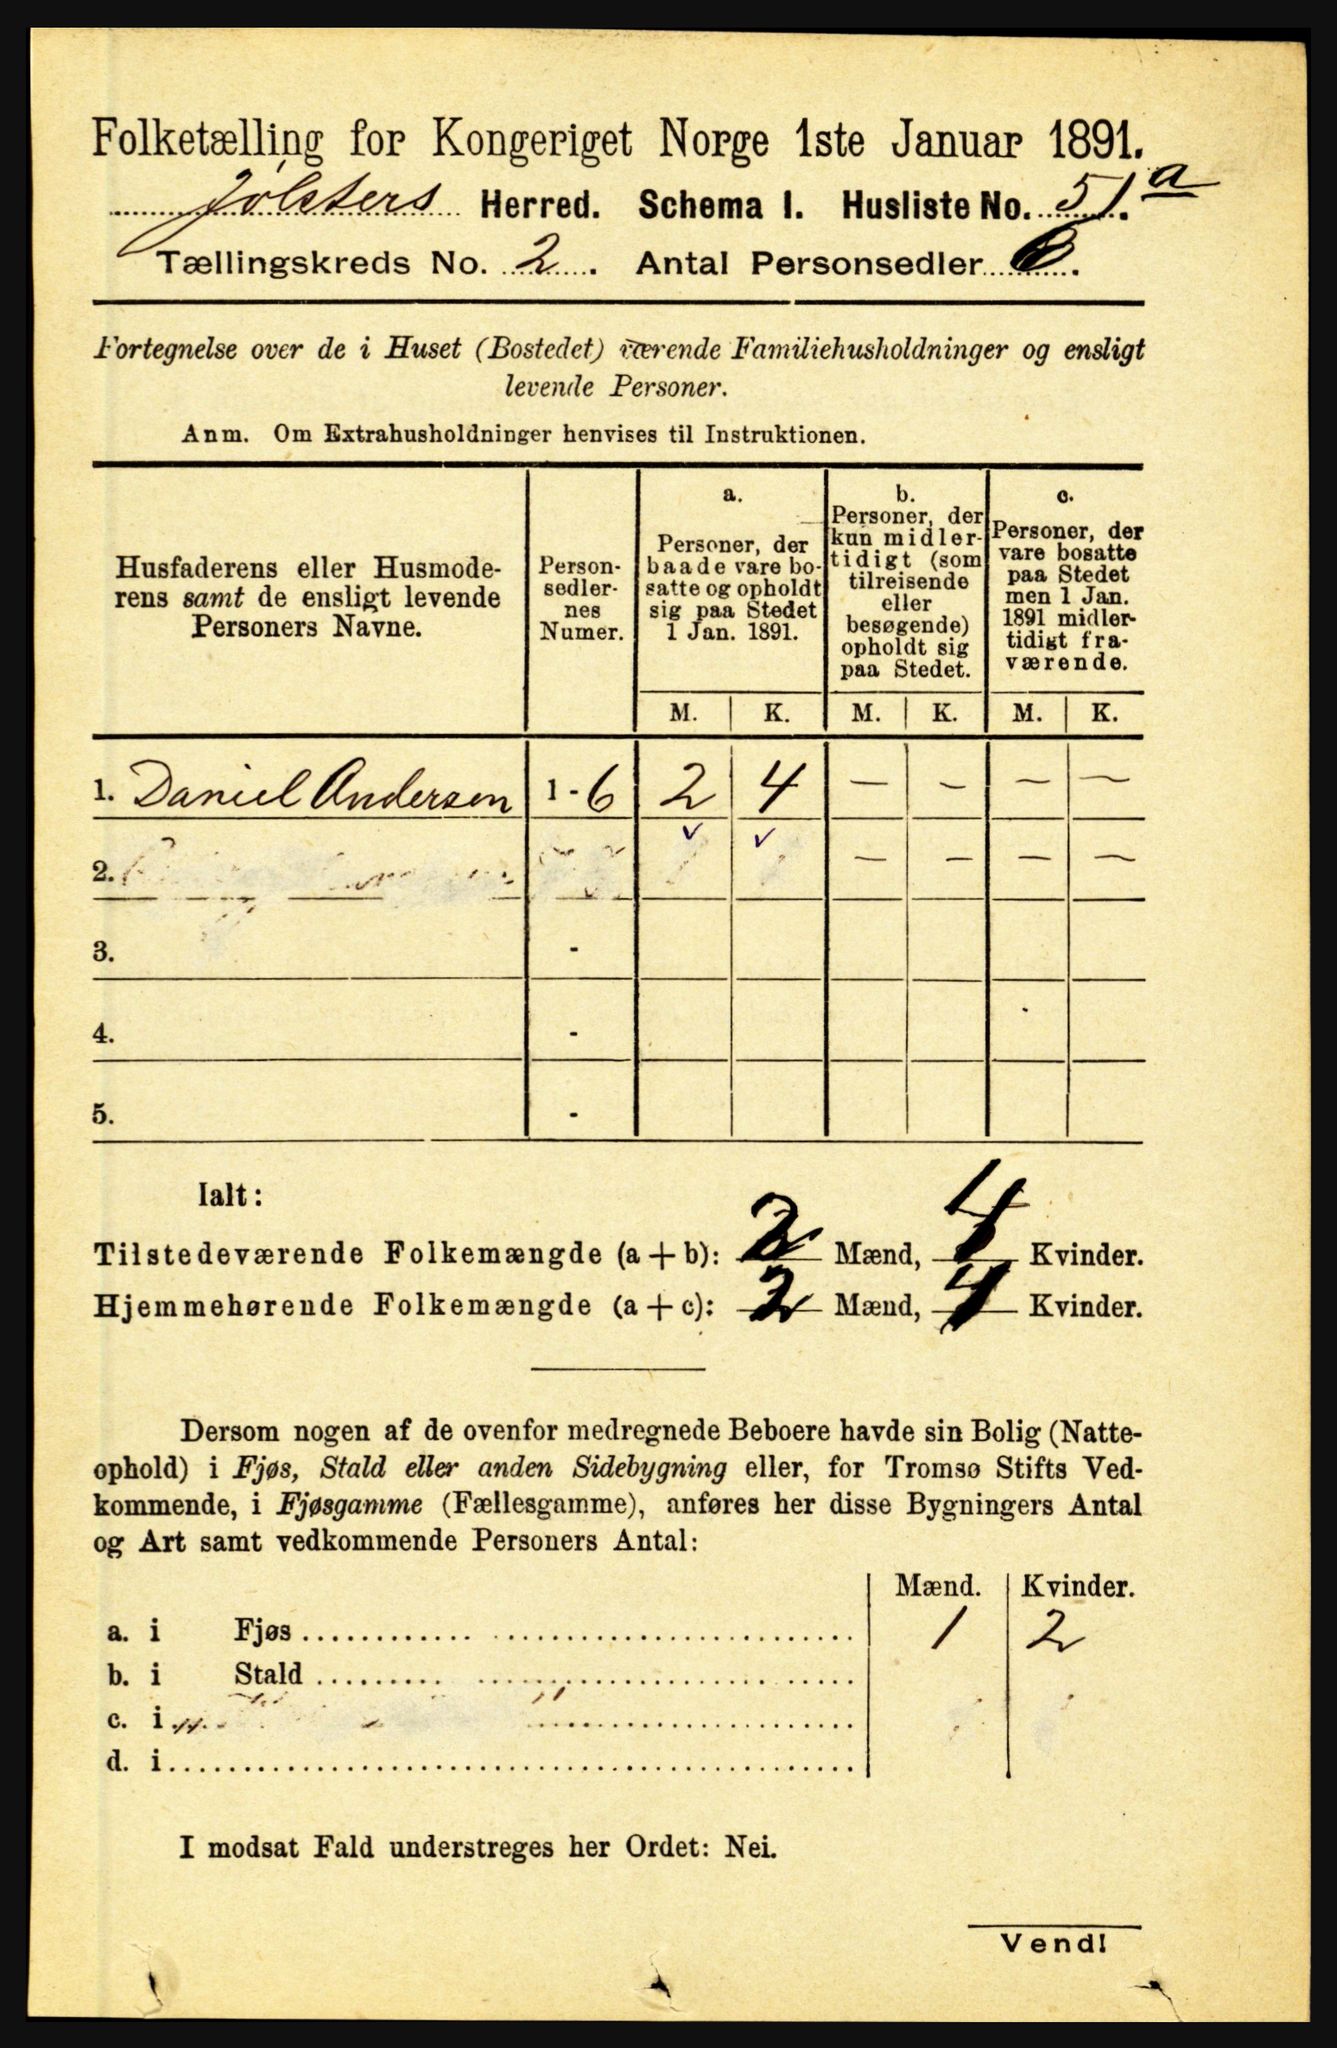 Folketælling for Kongeriget Norge 1ste Januar 1891.
Jølsters Herred. Schema I. Husliste No. 51. a
Tællingskreds No. 2. Antal Personsedler 6.
Fortegnelse over de i Huset (Bostedet) værende Familiehusholdninger og ensligt
levende Personer.
Anm. Om Extrahusholdninger henvises til Instruktionen.
Husfaderens eller Husmode-
rens samt de ensligt levende
Personers Navne.
Person-
sedler-
nes
Numer.
a.
Personer, der
baade vare bo-
satte og opholdt
sig paa Stedet
1 Jan. 1891.
b.
Personer, der
kun midler-
tidigt (som
tilreisende
eller
besøgende)
opholdt sig
paa Stedet.
c.
Personer, der
vare bosatte
paa Stedet
men 1 Jan.
1891 midler-
tidigt fra-
værende.
M. K. M. K. M. K.
1. Daniel Andersen 1 - 6 2 4 — — — —
2. — — — —
3. -
4. -
5. -
Ialt:
Tilstedeværende Folkemængde (a + b): 2 Mænd, 4 Kvinder.
Hjemmehørende Folkemængde (a + c): 2 Mænd, 4 Kvinder.
Dersom nogen af de ovenfor medregnede Beboere havde sin Bolig (Natte-
ophold) i Fjøs, Stald eller anden Sidebygning eller, for Tromsø Stifts Ved-
kommende, i Fjøsgamme (Fællesgamme), anføres her disse Bygningers Antal
og Art samt vedkommende Personers Antal:
Mænd. Kvinder.
a. i Fjøs 1 2
b. i Stald
c. i
d. i
I modsat Fald understreges her Ordet: Nei.
Vend!